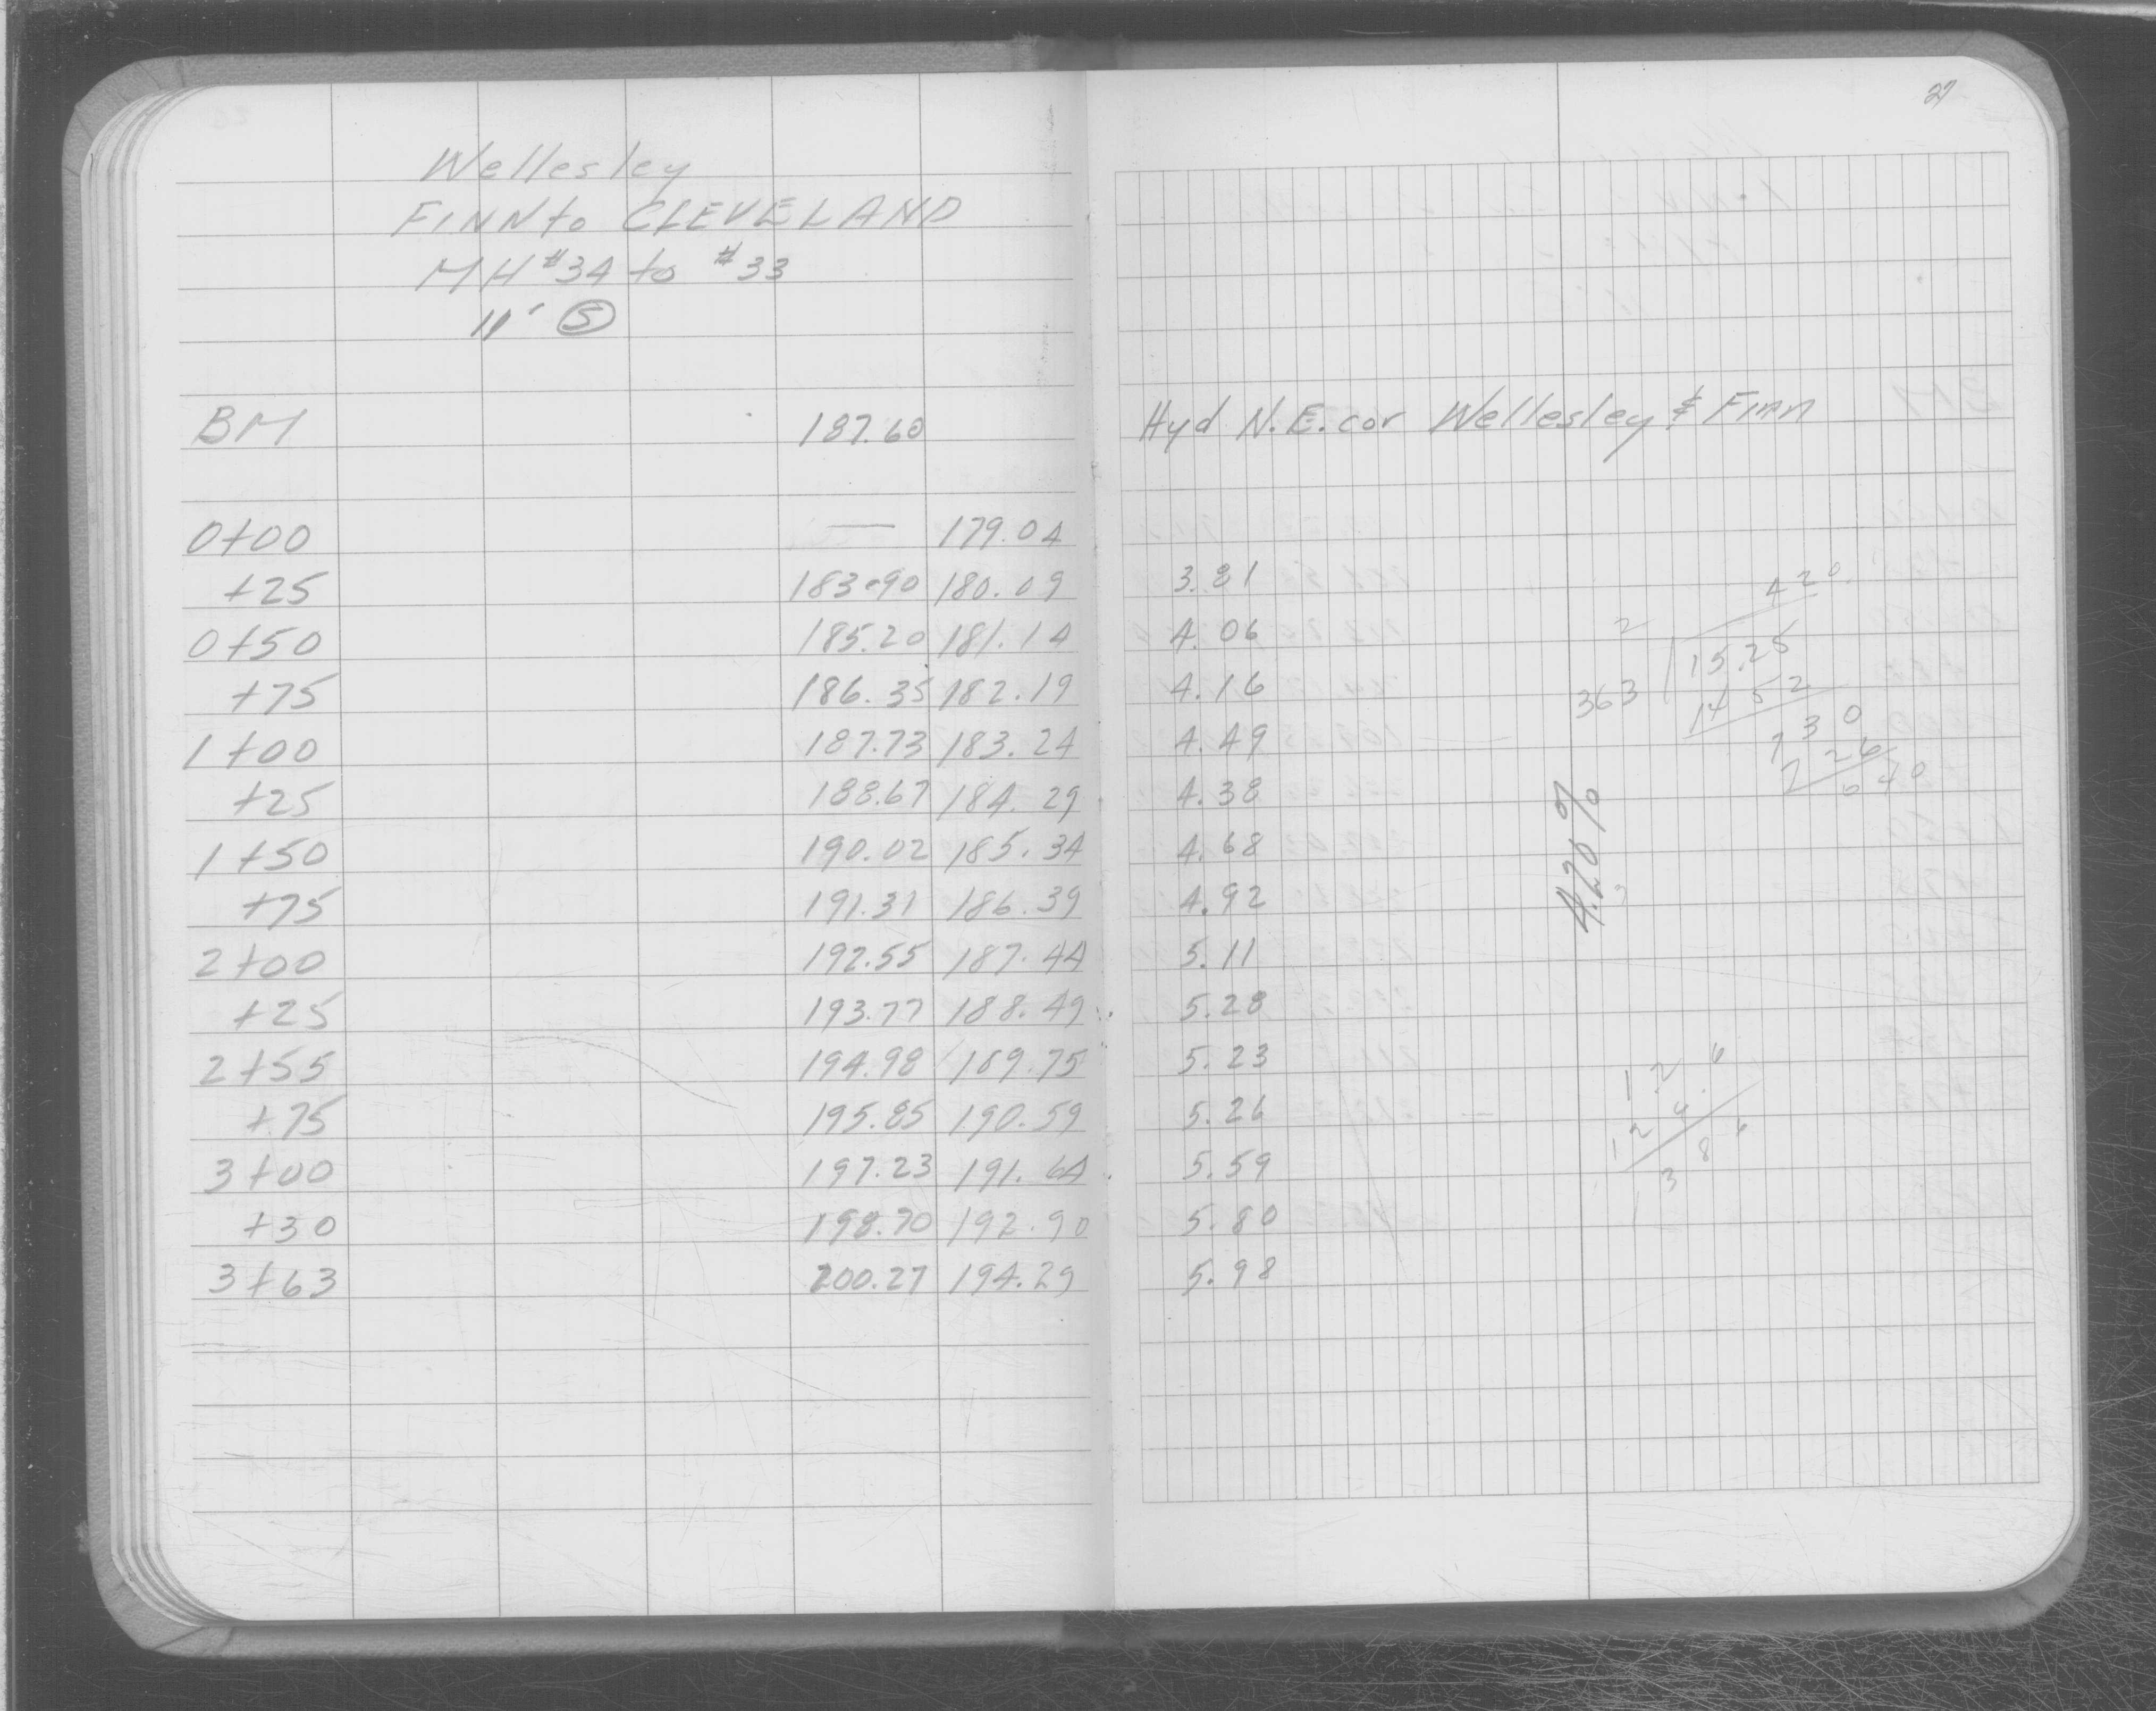 27
Wellesley
FINN to CLEVELAND
MH #34 to #33
11' S
BM 187.60 Hyd N.E. cor Wellesley & Finn
0+00 — 179.04
+25 183.90 180.09 3.81
0+50 185.20 181.14 4.06
+75 186.35 182.19 4.16
1+00 187.73 183.24 4.49
+25 188.67 184.29 4.38
1+50 190.02 185.34 4.68
+75 191.31 186.39 4.92
2+00 192.55 187.44 5.11
+25 193.77 188.49 5.28
2+55 194.98 189.75 5.23
+75 195.85 190.59 5.26
3+00 197.23 191.64 5.59
+30 198.70 192.90 5.80
3+63 200.27 194.29 5.98
4 20
2
363 15.25
14 52
7 30
7 26
4.20%
1 2 6